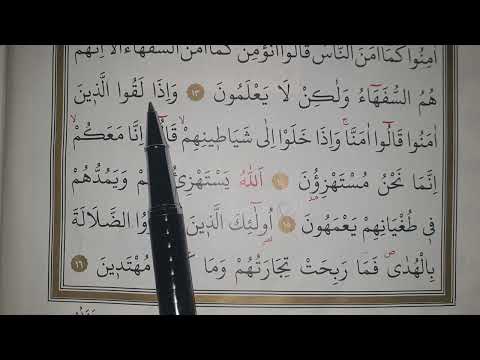 اٰمِنُوا كَمَٓا اٰمَنَ النَّاسُ قَالُٓوا اَنُؤْمِنُ كَمَٓا اٰمَنَ السُّفَهَٓاءُ اَلَٓا اِنَّهُمْ
هُمُ السُّفَهَٓاءُ وَلٰكِنْ لَا يَعْلَمُونَ ١٣ وَاِذَا لَقُوا الَّذ۪ينَ
اٰمَنُوا قَالُٓوا اٰمَنَّا وَاِذَا خَلَوْا اِلٰى شَيَاط۪ينِهِمْ قَالُٓوا اِنَّا مَعَكُمْ
اِنَّمَا نَحْنُ مُسْتَهْزِؤُ۫نَ اَللّٰهُ يَسْتَهْزِئُ وَيَمُدُّهُمْ
ف۪ي طُغْيَانِهِمْ يَعْمَهُونَ اُو۬لٰٓئِكَ الَّذ۪ينَ الضَّلَالَةَ
بِالْهُدٰى فَمَا رَبِحَتْ تِجَارَتُهُمْ وَمَا مُهْتَد۪ينَ ١٦